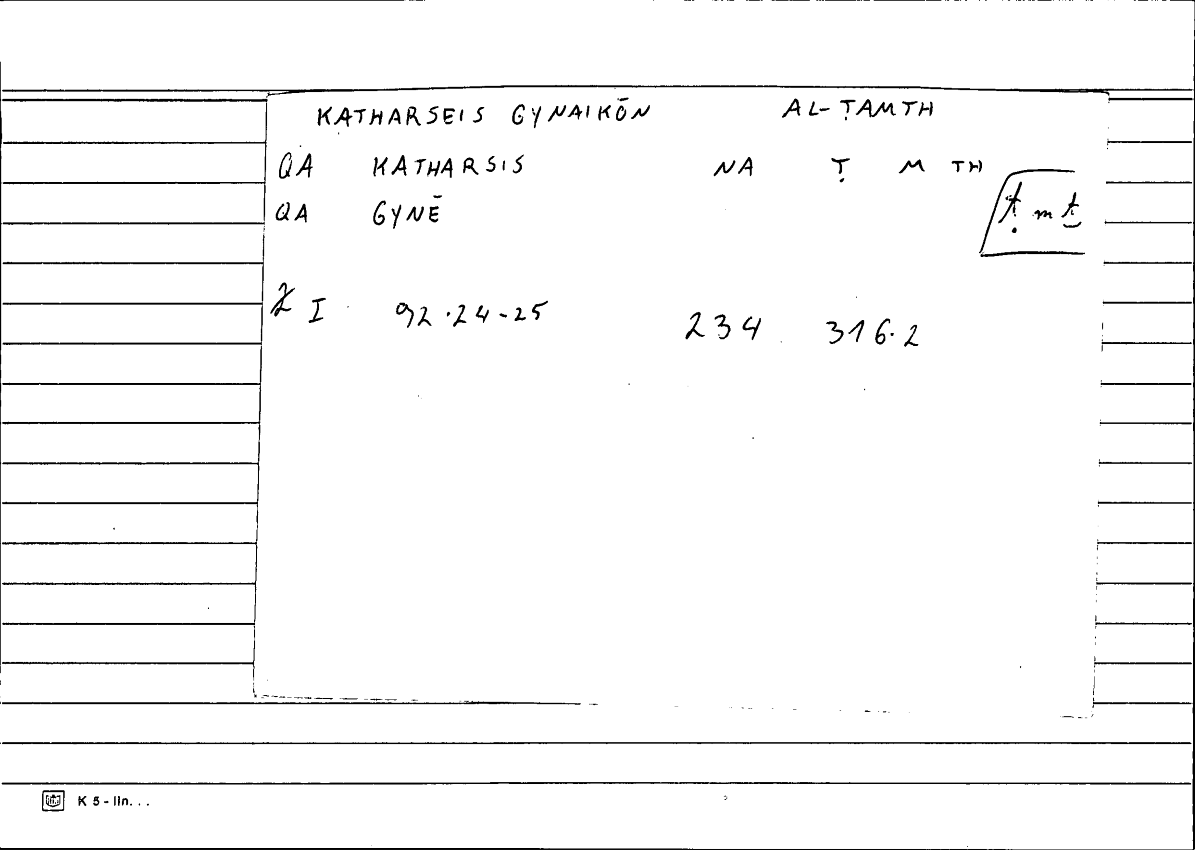 KATHARSEIS GYNAIKŌN AL-ṬAMTH
QA KATHARSIS NA Ṭ M TH
QA GYNĒ ṭ m ṯ
Z I 92.24-25 234 316.2
K 5 - lin. . .